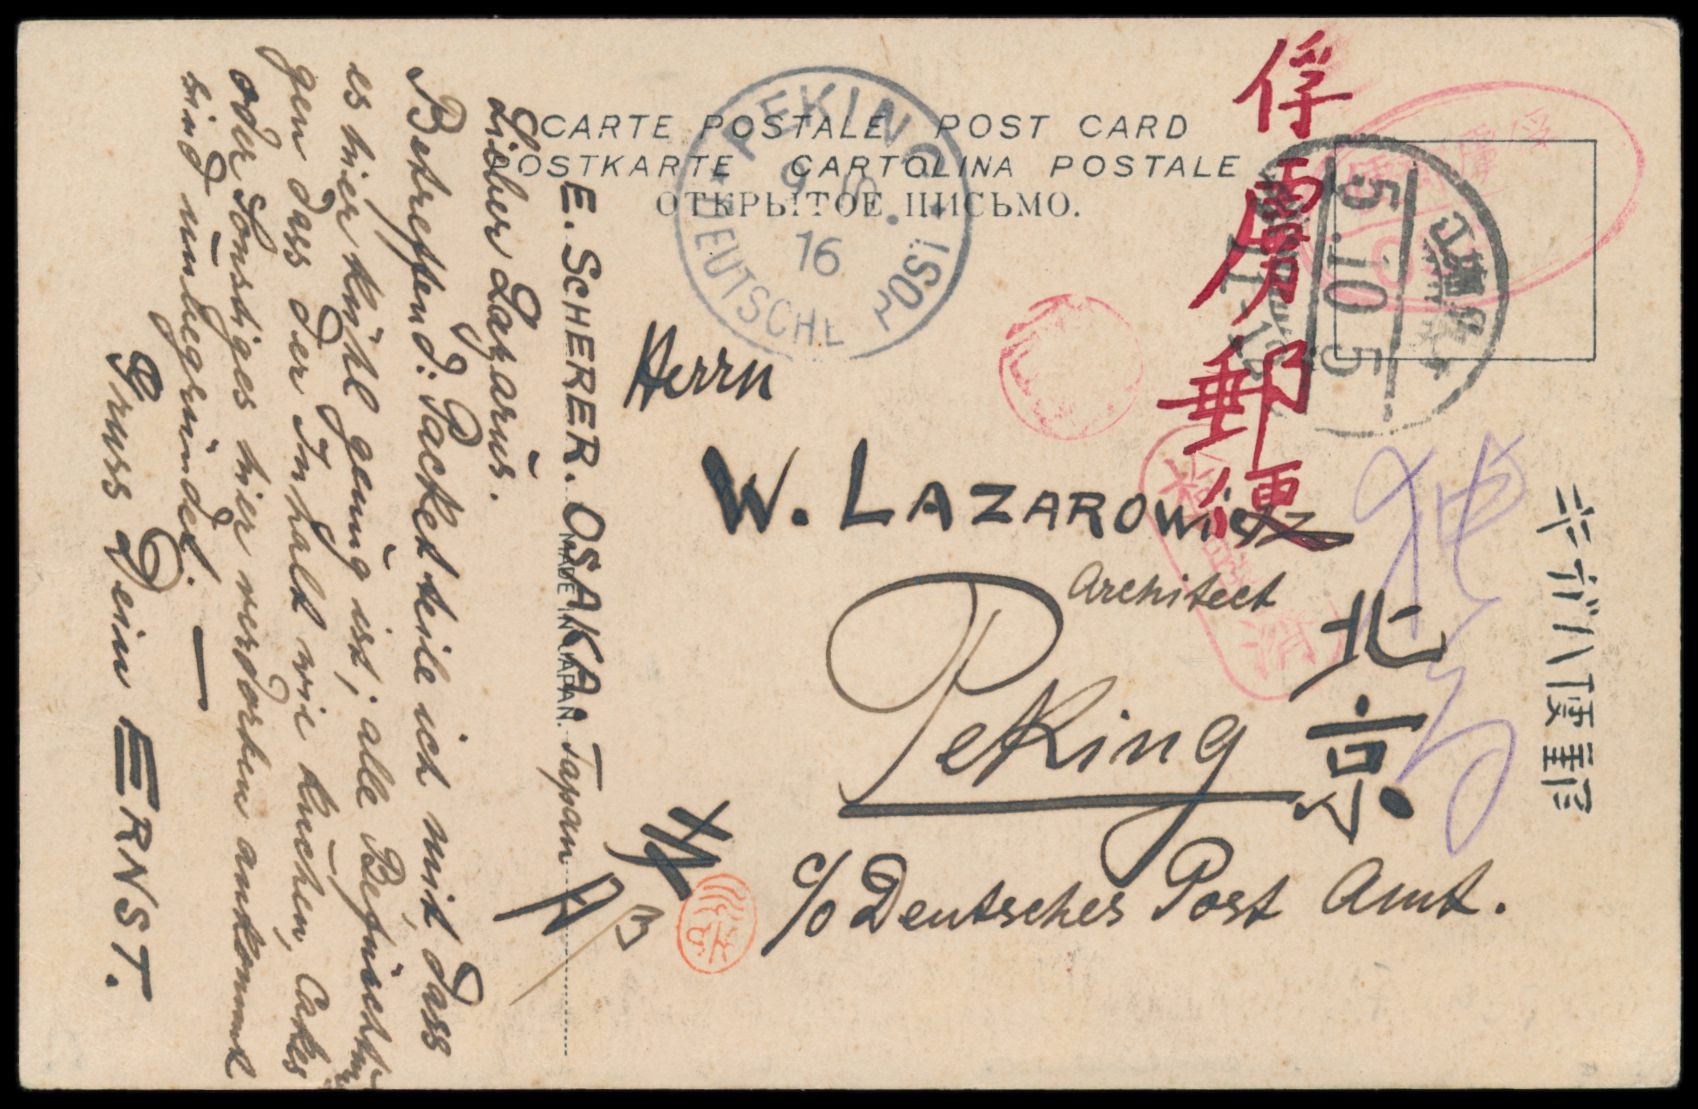 CARTE POSTALE POST CARD
POSTKARTE CARTOLINA POSTALE
ОТКРЫТОЕ ПИСЬМО.
俘虜郵便
PEKING
9 5
16
DEUTSCHE POST
5.10.5
Herrn
W. LAZAROWICZ
Architect
Peking
北京
c/o Deutsches Post Amt.
郵便はがき
E. SCHERER. OSAKA. Japan
MADE IN JAPAN.
Lieber Lazarus.
Betreffend: Packet teile ich mit dass
es hier kühl genug ist; alle Befürchtun
gen dass der Inhalt wie Kuchen, Cakes
oder Sonstiges hier verdorben ankommt
sind unbegründet. —
Gruss Dein ERNST.